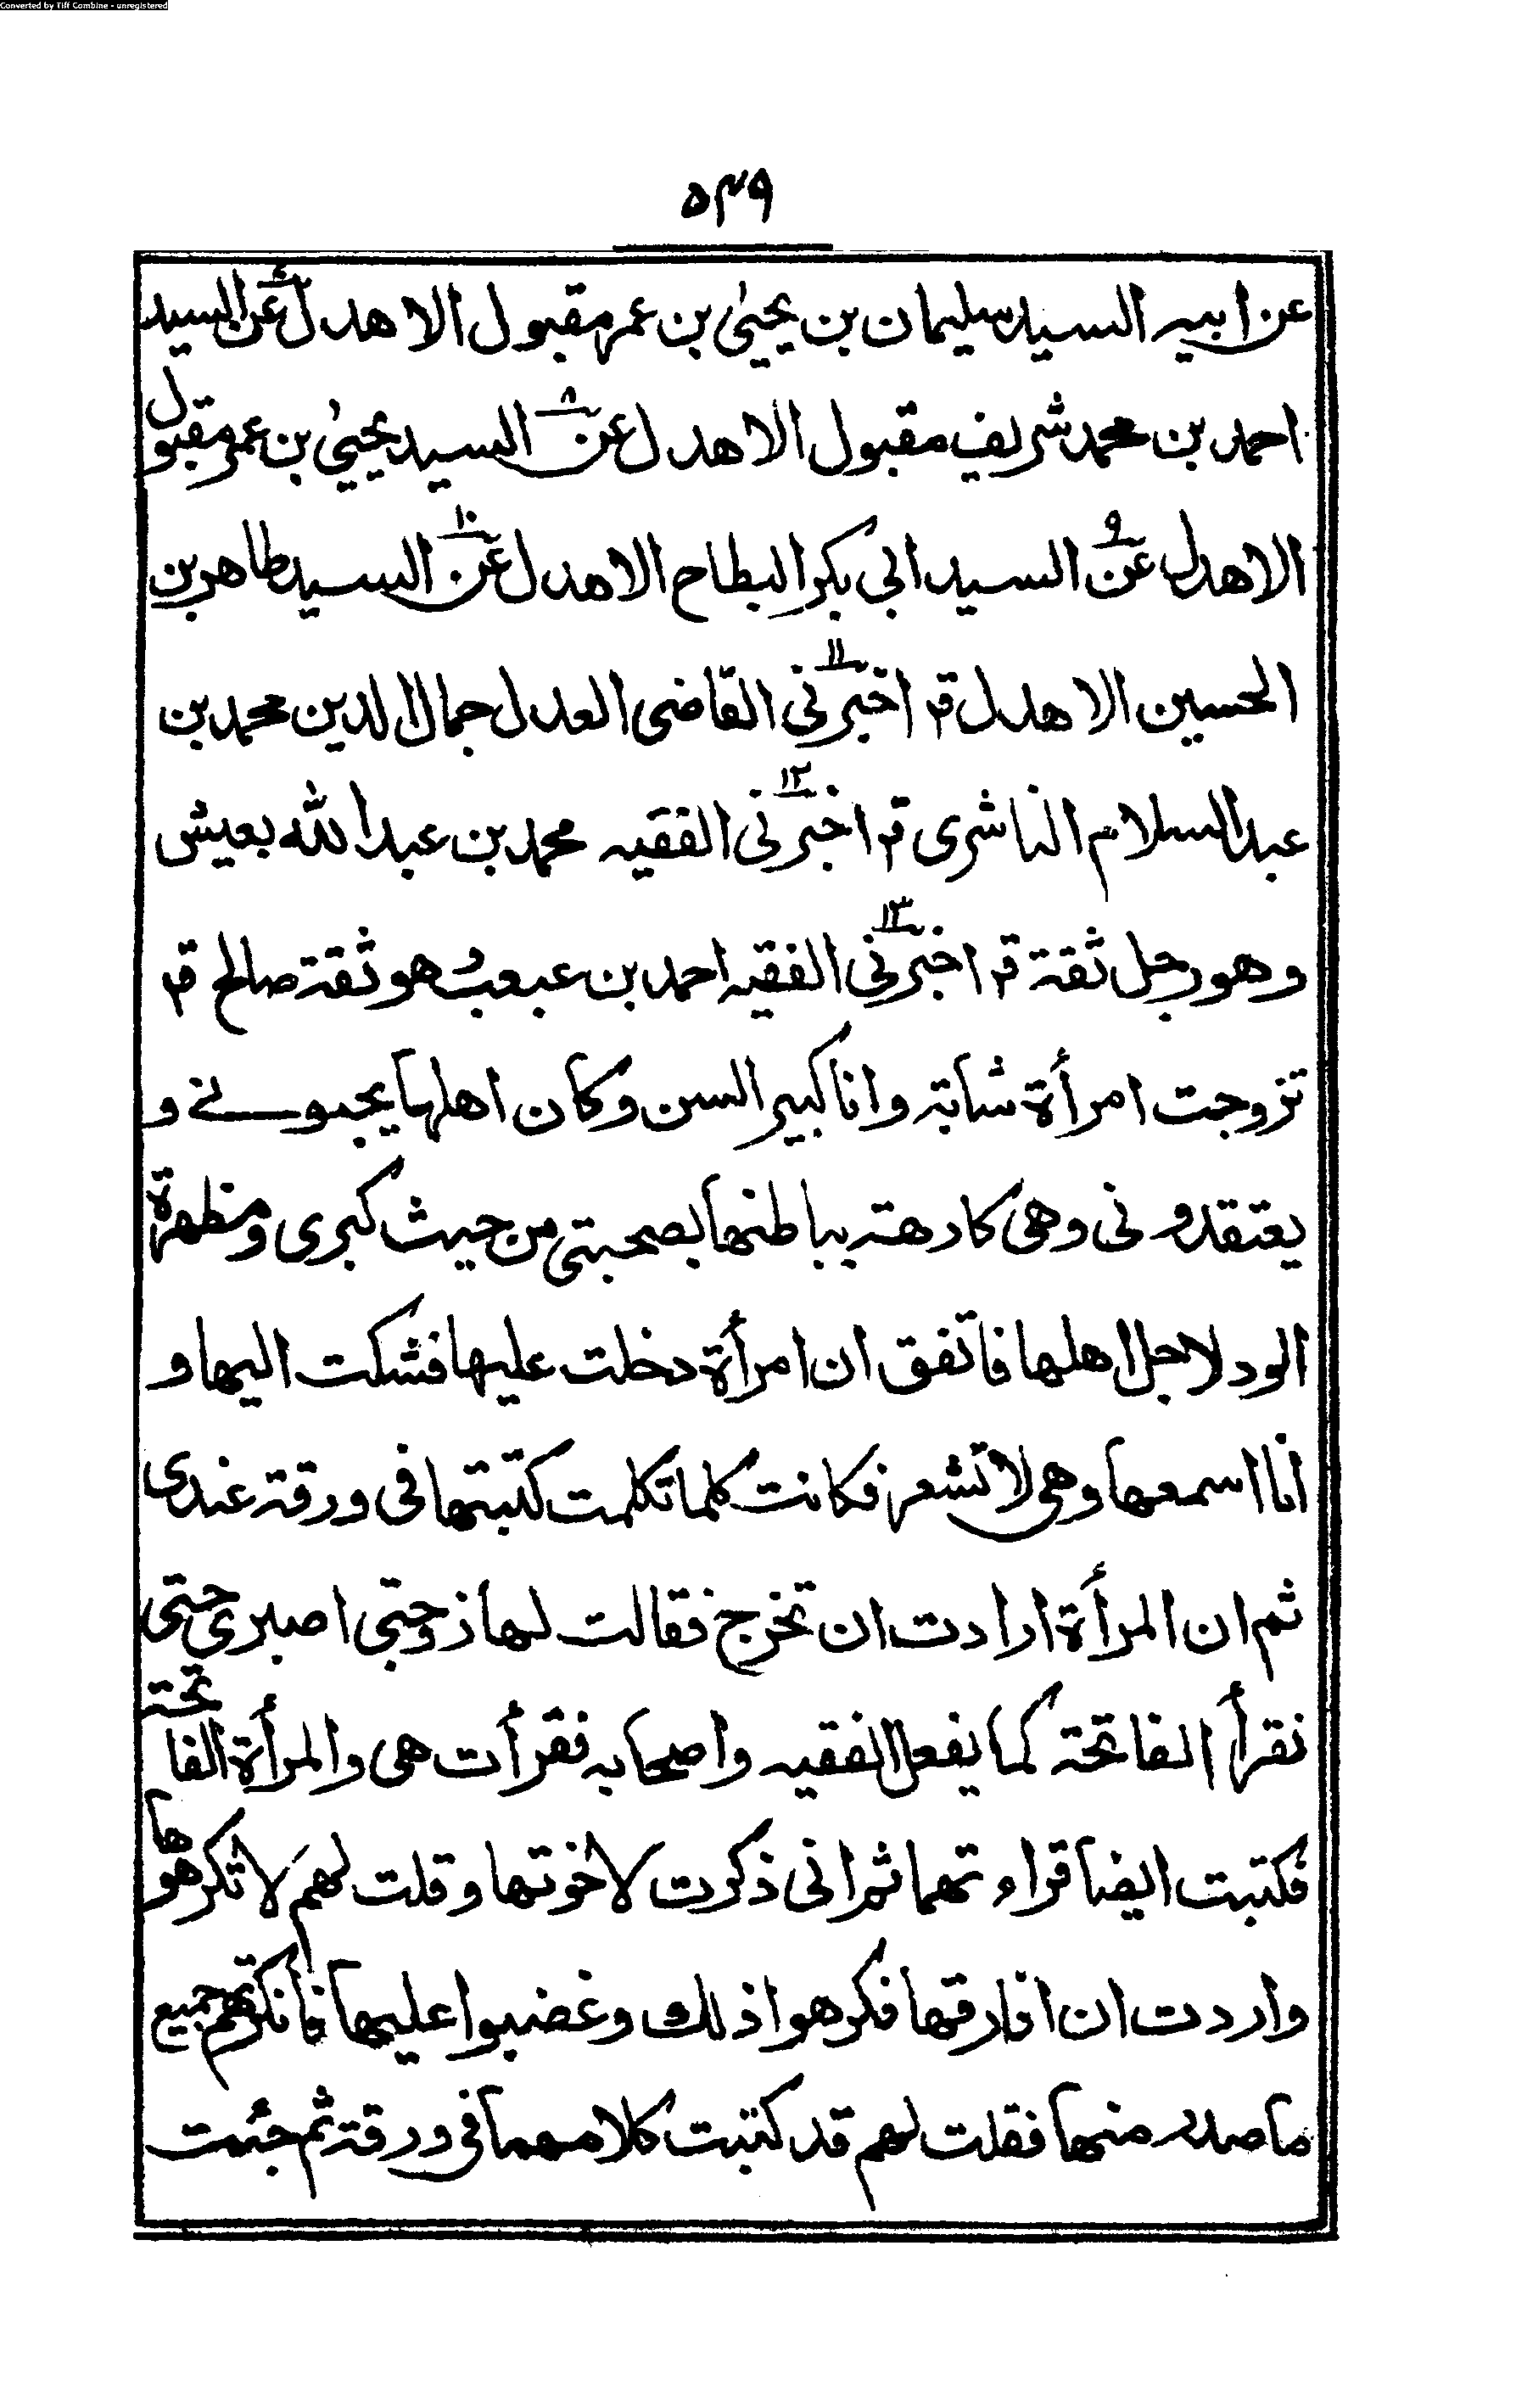 Converted by Tiff Combine - unregistered
۵۴۹
عن ابيه السيد سليمان بن يحيىٰ بن عمر مقبول الاهدل عن السيد
احمد بن محمد شريف مقبول الاهدل عن ٨ السيد يحيىٰ بن عمر مقبول
الاهدل عن ٩ السيد ابى بكر البطاح الاهدل عن ١٠ السيد طاهر بن
الحسين الاهدل قم اخبرنى ١١ القاضى العدل جمال الدين محمد بن
عبد السلام الناشرى قم اخبرنى ١٢ الفقيه محمد بن عبد الله بعيش
وهو رجل ثقة قم اخبرنى ١٣ الفقيه احمد بن عبعب وهو ثقة صالح قم
تزوجت امرأة شابة وانا كبير السن وكان اهلها يحبونے و
يعتقدونى وهى كارهة بباطنها بصحبتى من حيث كبرى ومظهرة
الود لاجل اهلها فاتفق ان امرأة دخلت عليها فشكت اليها و
انا اسمعها وهى لا تشعر فكانت كلما تكلمت كتبتها فى ورقة عندى
ثم ان المرأة ارادت ان تخرج فقالت لها زوجتى اصبرى حتى
نقرأ الفاتحة كما يفعل الفقيه واصحابه فقرأت هى والمرأة الفاتحة
فكتبت ايضا قراءتهما ثم انى ذكرت لاخوتها وقلت لهم لا تكرهوها
واردت ان افارقها فكرهوا ذلك وغضبوا عليها فانكرتهم جميع
ما صدر منها فقلت لهم قد كتبت كلامهما فى ورقة ثم جئت